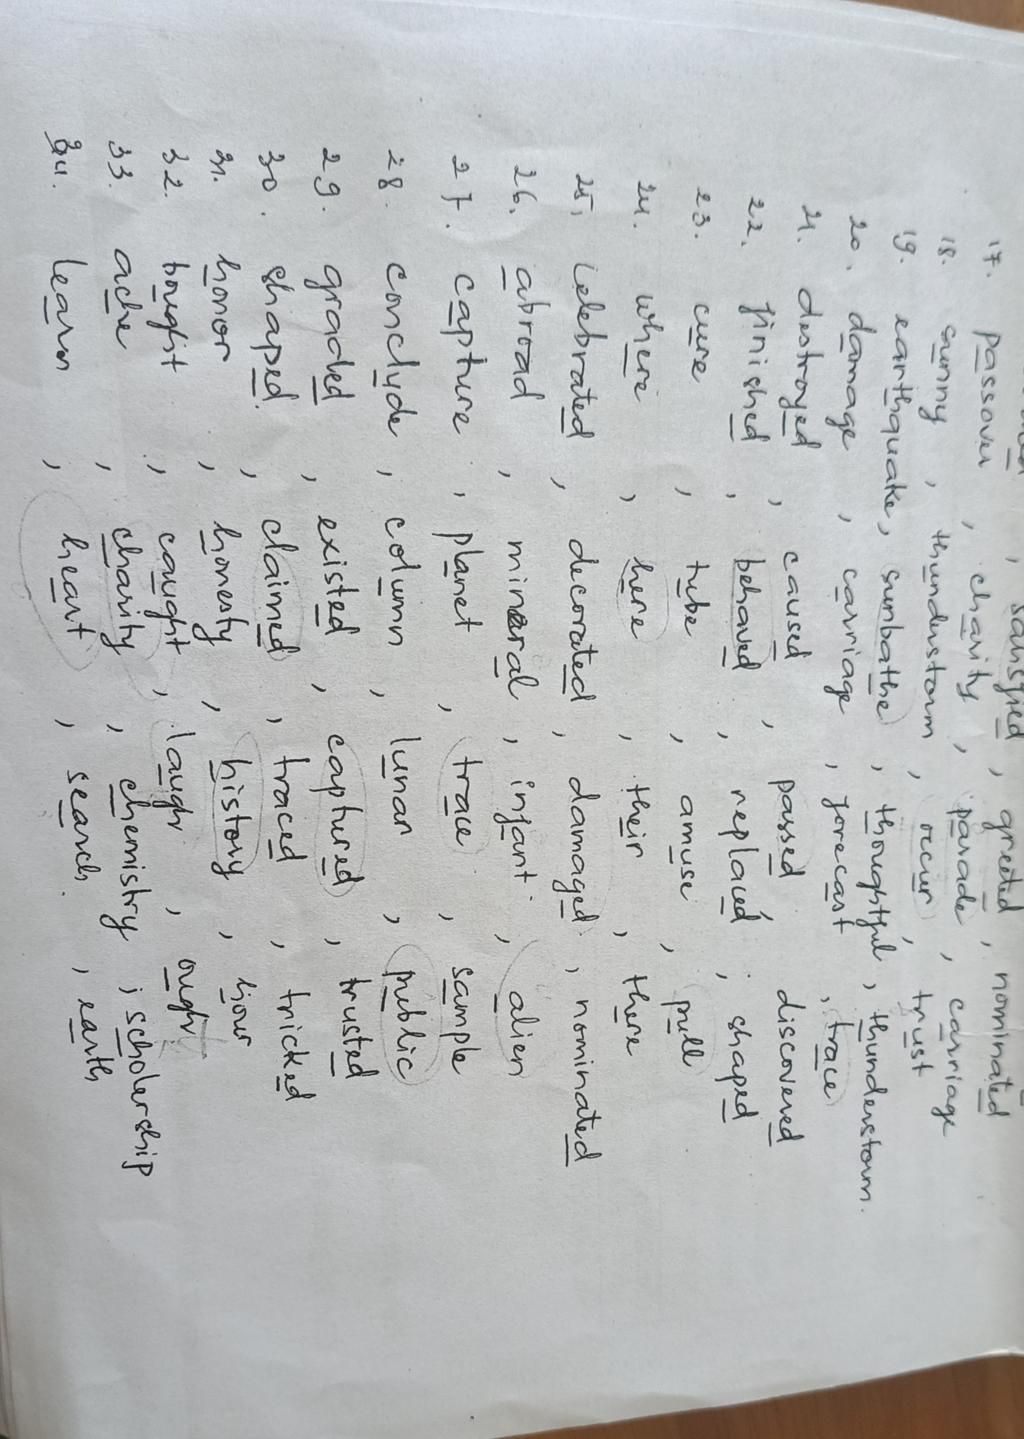 satisfied, greeted, nominated
17. passover, charity, parade, carriage
18. sunny, thunderstorm, occur, trust
19. earthquake, sunbathe, thoughtful, thunderstorm.
20. damage, carriage, forecast, trace
21. destroyed, caused, passed, discovered
22. finished, behaved, replaced, shaped
23. cure, tube, amuse, pull
24. where, here, their, there
25. celebrated, decorated, damaged, nominated
26. abroad, mineral, infant, alien
27. capture, planet, trace, sample
28. conclude, column, lunar, public
29. graded, existed, captured, trusted
30. shaped, claimed, traced, tricked
31. honor, honesty, history, hour
32. bought, caught, laugh, ought
33. ache, charity, chemistry, scholership
34. learn, heart, search, earth